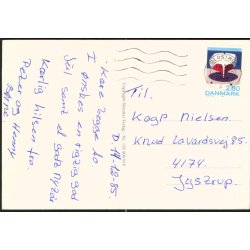 Kære begge to
D. 14-12-85.
I ønskes en rigtig god
Jul samt et godt Nytår
Kærlig hilsen fra
Peter og Hanne
Børne
2.80
DANMARK
Til.
Kaga Nielsen.
Knud Lavardsvej 85.
4174
Jystrup.